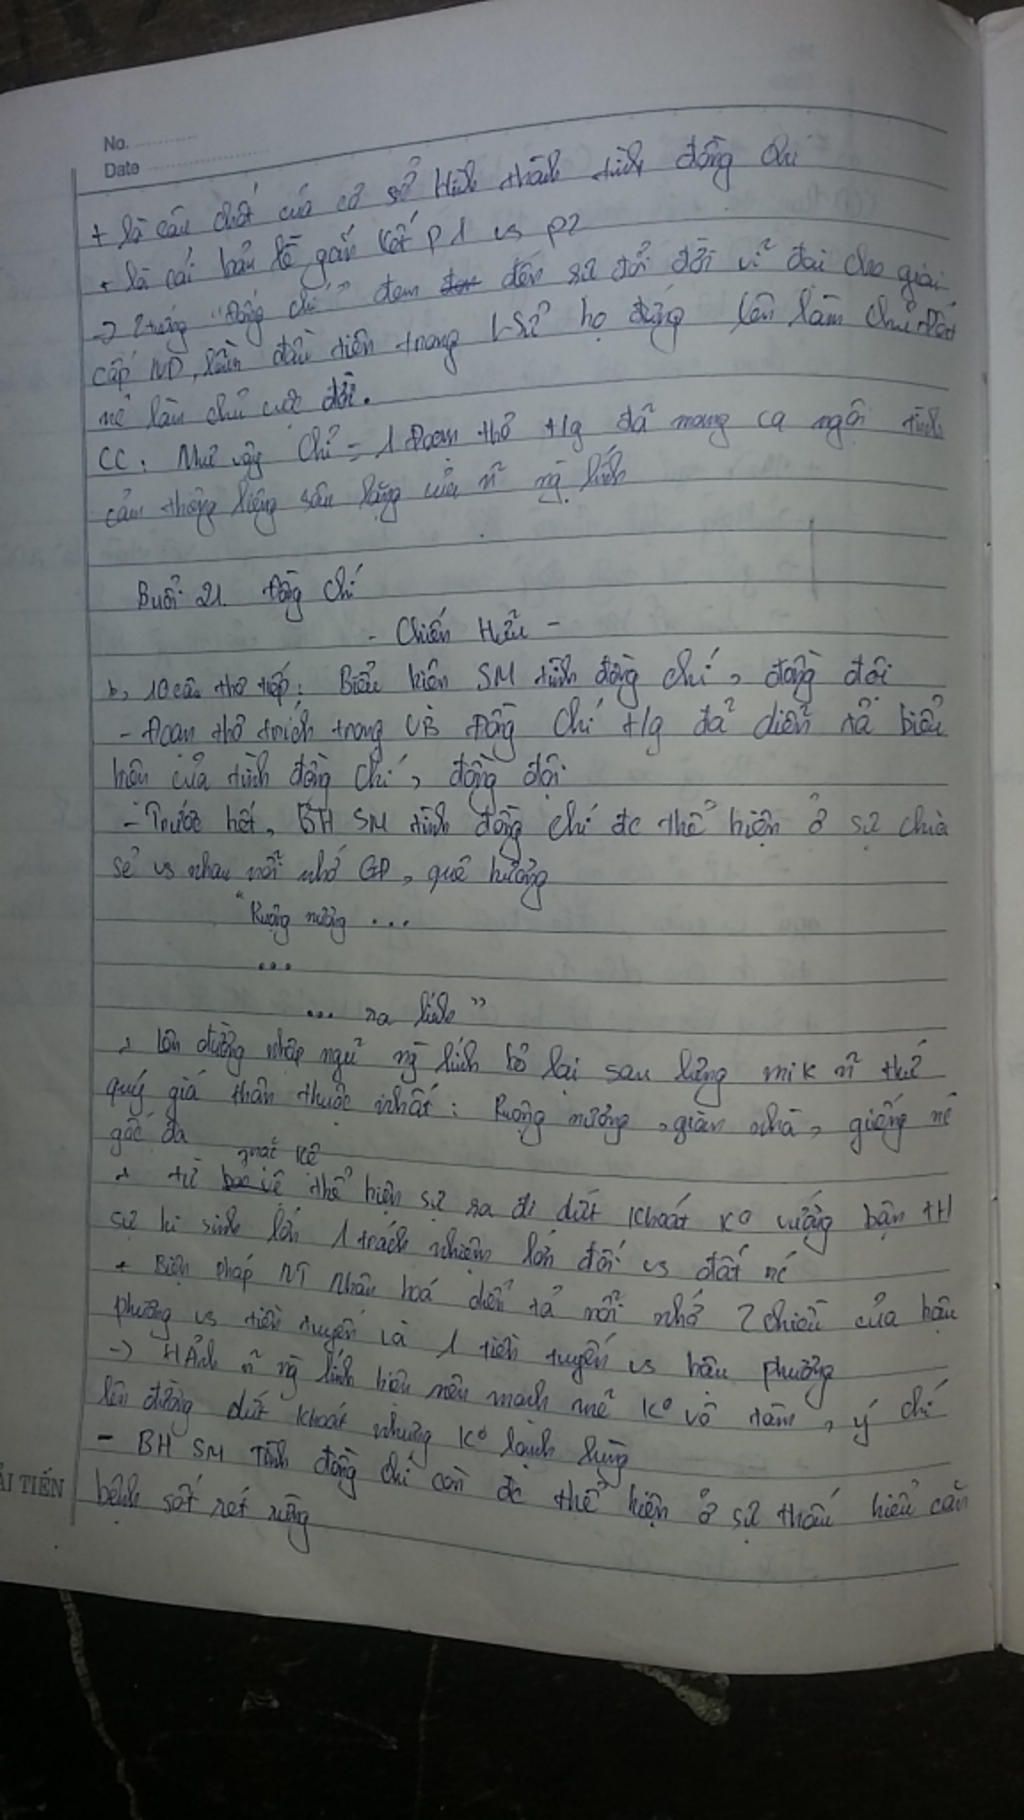 No.
Date
+ là câu chốt của cơ sở Hình thành tình đồng chí
+ là cái bản lề gắn kết P1 vs P2
→ 2 tiếng "Đồng chí" đem đến sự đổi đời vĩ đại cho giai
cấp ND, lần đầu tiên trong LSử họ đứng lên làm chủ đất
nc làm chủ cuộc đời.
CC: Như vậy Chỉ = 1 Đoạn thơ t/g đã mang ca ngợi tình
cảm thiêng liêng sâu lặng của n~ ng lính
Buổi 21. Đồng chí
- Chiến Hữu -
b, 10 câu thơ tiếp: Biểu hiện SM tình đồng chí, đồng đội
- Đoạn thơ trích trong VB Đồng Chí t/g đã diễn tả biểu
hiện của tình đồng chí, đồng đội
- Trước hết, BH SM tình đồng chí đc thể hiện ở sự chia
sẻ vs nhau nỗi nhớ GĐ, quê hương
"Ruộng nương ...
...
... ra lính"
+ Lên đường nhập ngũ ng lính bỏ lại sau lưng mik n~ thứ
quý giá thân thuộc nhất: Ruộng nương, gian nhà, giếng nc
gốc đa
mặc kệ
+ từ thể hiện sự ra đi dứt khoát ko vướng bận
sự hi sinh lớn 1 trách nhiệm lớn đối vs đất nc
+ Biện pháp NT nhân hoá diễn tả nỗi nhớ 2 chiều của hậu
phương vs tiền tuyến và 1 tiền tuyến vs hậu phương
→ HẢnh n~ ng lính hiện nên mạnh mẽ ko vô tâm, ý chí
lên đường dứt khoát nhưng ko lạnh lùng
- BH SM Tình đồng chí còn đc thể hiện ở sự thấu hiểu căn
bệnh sốt rét rừng
ẢI TIẾN